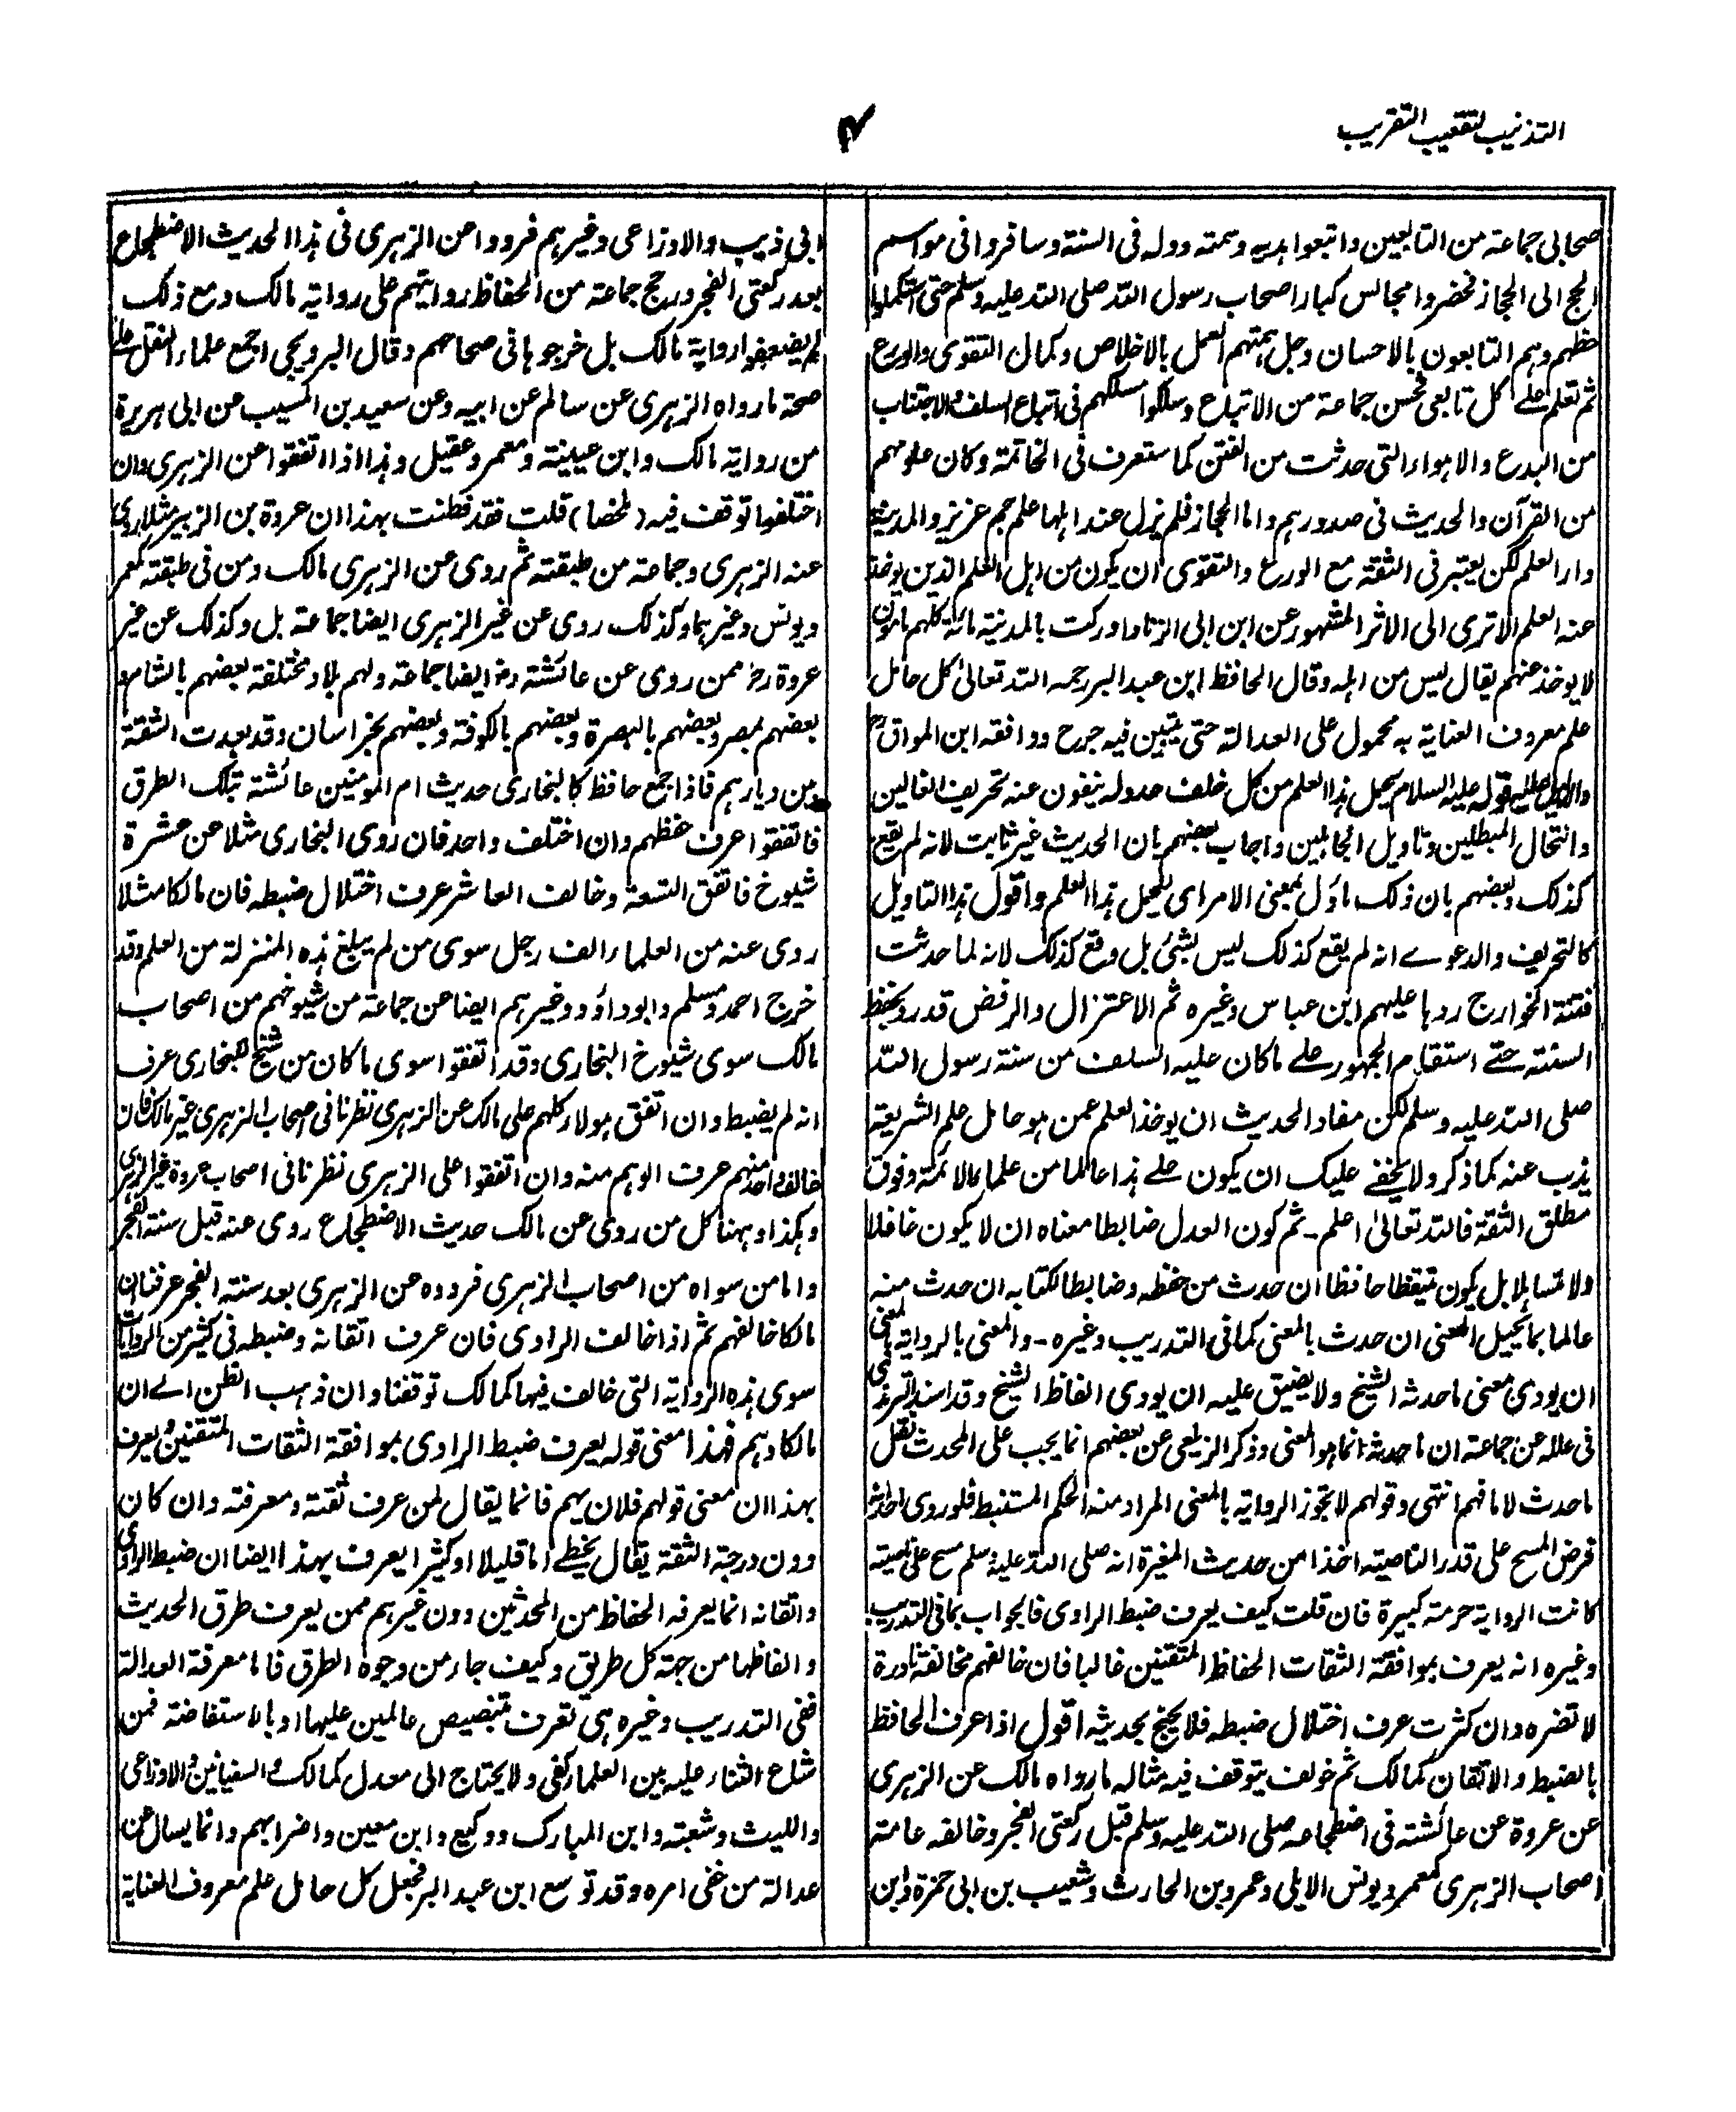 التذنيب لتعقيب التقريب
۴
صحابی جماعة من التابعین واتبعوا ہدیہ وسمتہ ودلہ فی السنة وسافروا فی مواسم
الحج الی الحجاز فحضروا مجالس کبار اصحاب رسول اللہ صلی اللہ علیہ وسلم حتی استکملوا
حظہم وہم التابعون بالاحسان وجل ہمتہم العمل بالاخلاص وکمال التقوی والورع
ثم تعلم علے کل تابعی محسن جماعة من الاتباع وسلکوا مسلکہم فی اتباع السلف والاجتناب
من البدع والاہواء التی حدثت من الفتن کما ستعرف فی الخاتمة وکان علومہم
من القرآن والحدیث فی صدورہم واما الحجاز فلم یزل عند اہلہا علم جم عزیز والمدینة
دار العلم لکن یعتبر فی الثقة مع الورع والتقوی ان یکون من اہل العلم الذین یوخذ
عنہ العلم الا تری الی الاثر المشہور عن ابن ابی الزناد ادرکت بالمدینة مائة کلہم مامون
لا یوخذ عنہم یقال لیس من اہلہ وقال الحافظ ابن عبد البر رحمہ اللہ تعالیٰ کل حامل
علم معروف العنایة بہ محمول علی العدالة حتی یتبین فیہ جرح ووافقہ ابن المواق
والدلیل علیہ قولہ علیہ السلام یحمل ہذا العلم من کل خلف عدولہ ینفون عنہ تحریف الغالین
وانتحال المبطلین وتاویل الجاہلین واجاب بعضہم بان الحدیث غیر ثابت لانہ لم یقع
کذلک وبعضہم بان ذلک ماؤل بمعنی الامر ای لیحمل ہذا العلم واقول ہذا التاویل
کالتحریف والدعوے انہ لم یقع کذلک لیس بشئ بل وقع کذلک لانہ لما حدثت
فتنة الخوارج ردہا علیہم ابن عباس وغیرہ ثم الاعتزال والرفض قد رد بحفظ
السنة حتے استقام الجمہور علے ما کان علیہ السلف من سنة رسول اللہ
صلی اللہ علیہ وسلم لکن مفاد الحدیث ان یوخذ العلم عمن ہو حامل علم الشریعة
یذب عنہ کما ذکر ولا یخفے علیک ان یکون علے ہذا عالما من علماء الائمة وفوق
مطلق الثقة فاللہ تعالیٰ اعلم۔ ثم کون العدل ضابطا معناہ ان لا یکون غافلا
ولا متساہلا بل یکون متیقظا حافظا ان حدث من حفظہ وضابطا لکتابہ ان حدث منہ
عالما بما یحیل المعنی ان حدث بالمعنی کما فی التدریب وغیرہ۔ والمعنی بالروایة بالمعنی
ان یودی معنی ما حدثہ الشیخ ولا یضیق علیہ ان یودی الفاظ الشیخ وقد اسند الترمذی
فی عللہ عن جماعة ان ما حدثہ انما ہو المعنی وذکر الزیلعی عن بعضہم انما یجب علی المحدث نقل
ما حدث لا ما فہم انتہی وقولہم لا تجوز الروایة بالمعنی المراد منہ الحکم المستنبط فلو روی احد
فرض المسح علی قدر الناصیة اخذا من حدیث المغیرة انہ صلی اللہ علیہ وسلم مسح علی ناصیتہ
کانت الروایة حرمة کبیرة فان قلت کیف یعرف ضبط الراوی فالجواب بما فی التدریب
وغیرہ انہ یعرف بموافقة الثقات الحفاظ المتقنین غالبا فان خالفہم مخالفة نادرة
لا تضرہ وان کثرت عرف اختلال ضبطہ فلا یحتج بحدیثہ اقول اذا عرف الحافظ
بالضبط والاتقان کمالک ثم خولف یتوقف فیہ مثالہ ما رواہ مالک عن الزہری
عن عروة عن عائشة فی اضطجاعہ صلی اللہ علیہ وسلم قبل رکعتی الفجر وخالفہ عامة
اصحاب الزہری کمعمر ویونس الایلی وعمرو بن الحارث وشعیب بن ابی حمزة وابن
ابی ذیب والاوزاعی وغیرہم فرووا عن الزہری فی ہذا الحدیث الاضطجاع
بعد رکعتی الفجر ورجح جماعة من الحفاظ روایتہم علی روایة مالک ومع ذلک
لم یضعفوا روایة مالک بل خرجوہا فی صحاحہم وقال البردیجی اجمع علماء النقل علے
صحة ما رواہ الزہری عن سالم عن ابیہ وعن سعید بن المسیب عن ابی ہریرة
من روایة مالک وابن عیینة ومعمر وعقیل وہذا اذا اتفقوا عن الزہری وان
اختلفوا توقف فیہ (ملخصا) قلت فقد فطنت بہذا ان عروة بن الزبیر مثلا روی
عنہ الزہری وجماعة من طبقتہ ثم روی عن الزہری مالک ومن فی طبقتہ کمعمر
ویونس وغیرہما وکذلک روی عن غیر الزہری ایضا جماعة بل وکذلک عن غیر
عروة رض ممن روی عن عائشة رض ایضا جماعة ولہم بلاد مختلفة بعضہم بالشام و
بعضہم بمصر وبعضہم بالبصرة وبعضہم بالکوفة وبعضہم بخراسان وقد بعدت الشقة
بین دیارہم فاذا جمع حافظ کالبخاری حدیث ام المومنین عائشة بتلک الطرق
فاتفقوا عرف حفظہم وان اختلف واحد فان روی البخاری مثلا عن عشرة
شیوخ فاتفق التسعة وخالف العاشر عرف اختلال ضبطہ فان مالکا مثلا
روی عنہ من العلماء الف رجل سوی من لم یبلغ ہذہ المنزلة من العلم وقد
خرج احمد ومسلم وابو داؤد وغیرہم ایضا عن جماعة من شیوخہم من اصحاب
مالک سوی شیوخ البخاری وقد اتفقوا سوی ما کان من شیخ للبخاری عرف
انہ لم یضبط وان اتفق ہولاء کلہم علی مالک عن الزہری نظرنا فی اصحاب الزہری غیر مالک فان
خالف واحد منہم عرف الوہم منہ وان اتفقوا علی الزہری نظرنا فی اصحاب عروة غیر الزہری
وہکذا وہہنا کل من روی عن مالک حدیث الاضطجاع روی عنہ قبل سنة الفجر
واما من سواہ من اصحاب الزہری فرووہ عن الزہری بعد سنة الفجر عرفنا ان
مالکا خالفہم ثم اذا خالف الراوی فان عرف اتقانہ وضبطہ فی کثیر من الروایات
سوی ہذہ الروایة التی خالف فیہا کمالک توقفنا وان ذہب الظن الے ان
مالکا وہم فہذا معنی قولہ یعرف ضبط الراوی بموافقة الثقات المتقنین ویعرف
بہذا ان معنی قولہم فلان یہم فانما یقال لمن عرف ثقتہ ومعرفتہ وان کان
دون درجة الثقة یقال یخطے اما قلیلا او کثیرا یعرف بہذا ایضا ان ضبط الراوی
واتقانہ انما یعرفہ الحفاظ من المحدثین دون غیرہم ممن یعرف طرق الحدیث
والفاظہا من جہة کل طریق وکیف جاء من وجوہ الطرق فاما معرفة العدالة
ففی التدریب وغیرہ ہی تعرف بتنصیص عالمین علیہا او بالاستفاضة فمن
شاع الثناء علیہ بین العلماء کفی ولا یحتاج الی معدل کمالک والسفیانین والاوزاعی
واللیث وشعبة وابن المبارک ووکیع وابن معین واضرابہم وانما یسال عن
عدالة من خفی امرہ وقد توسع ابن عبد البر فجعل کل حامل علم معروف العنایة